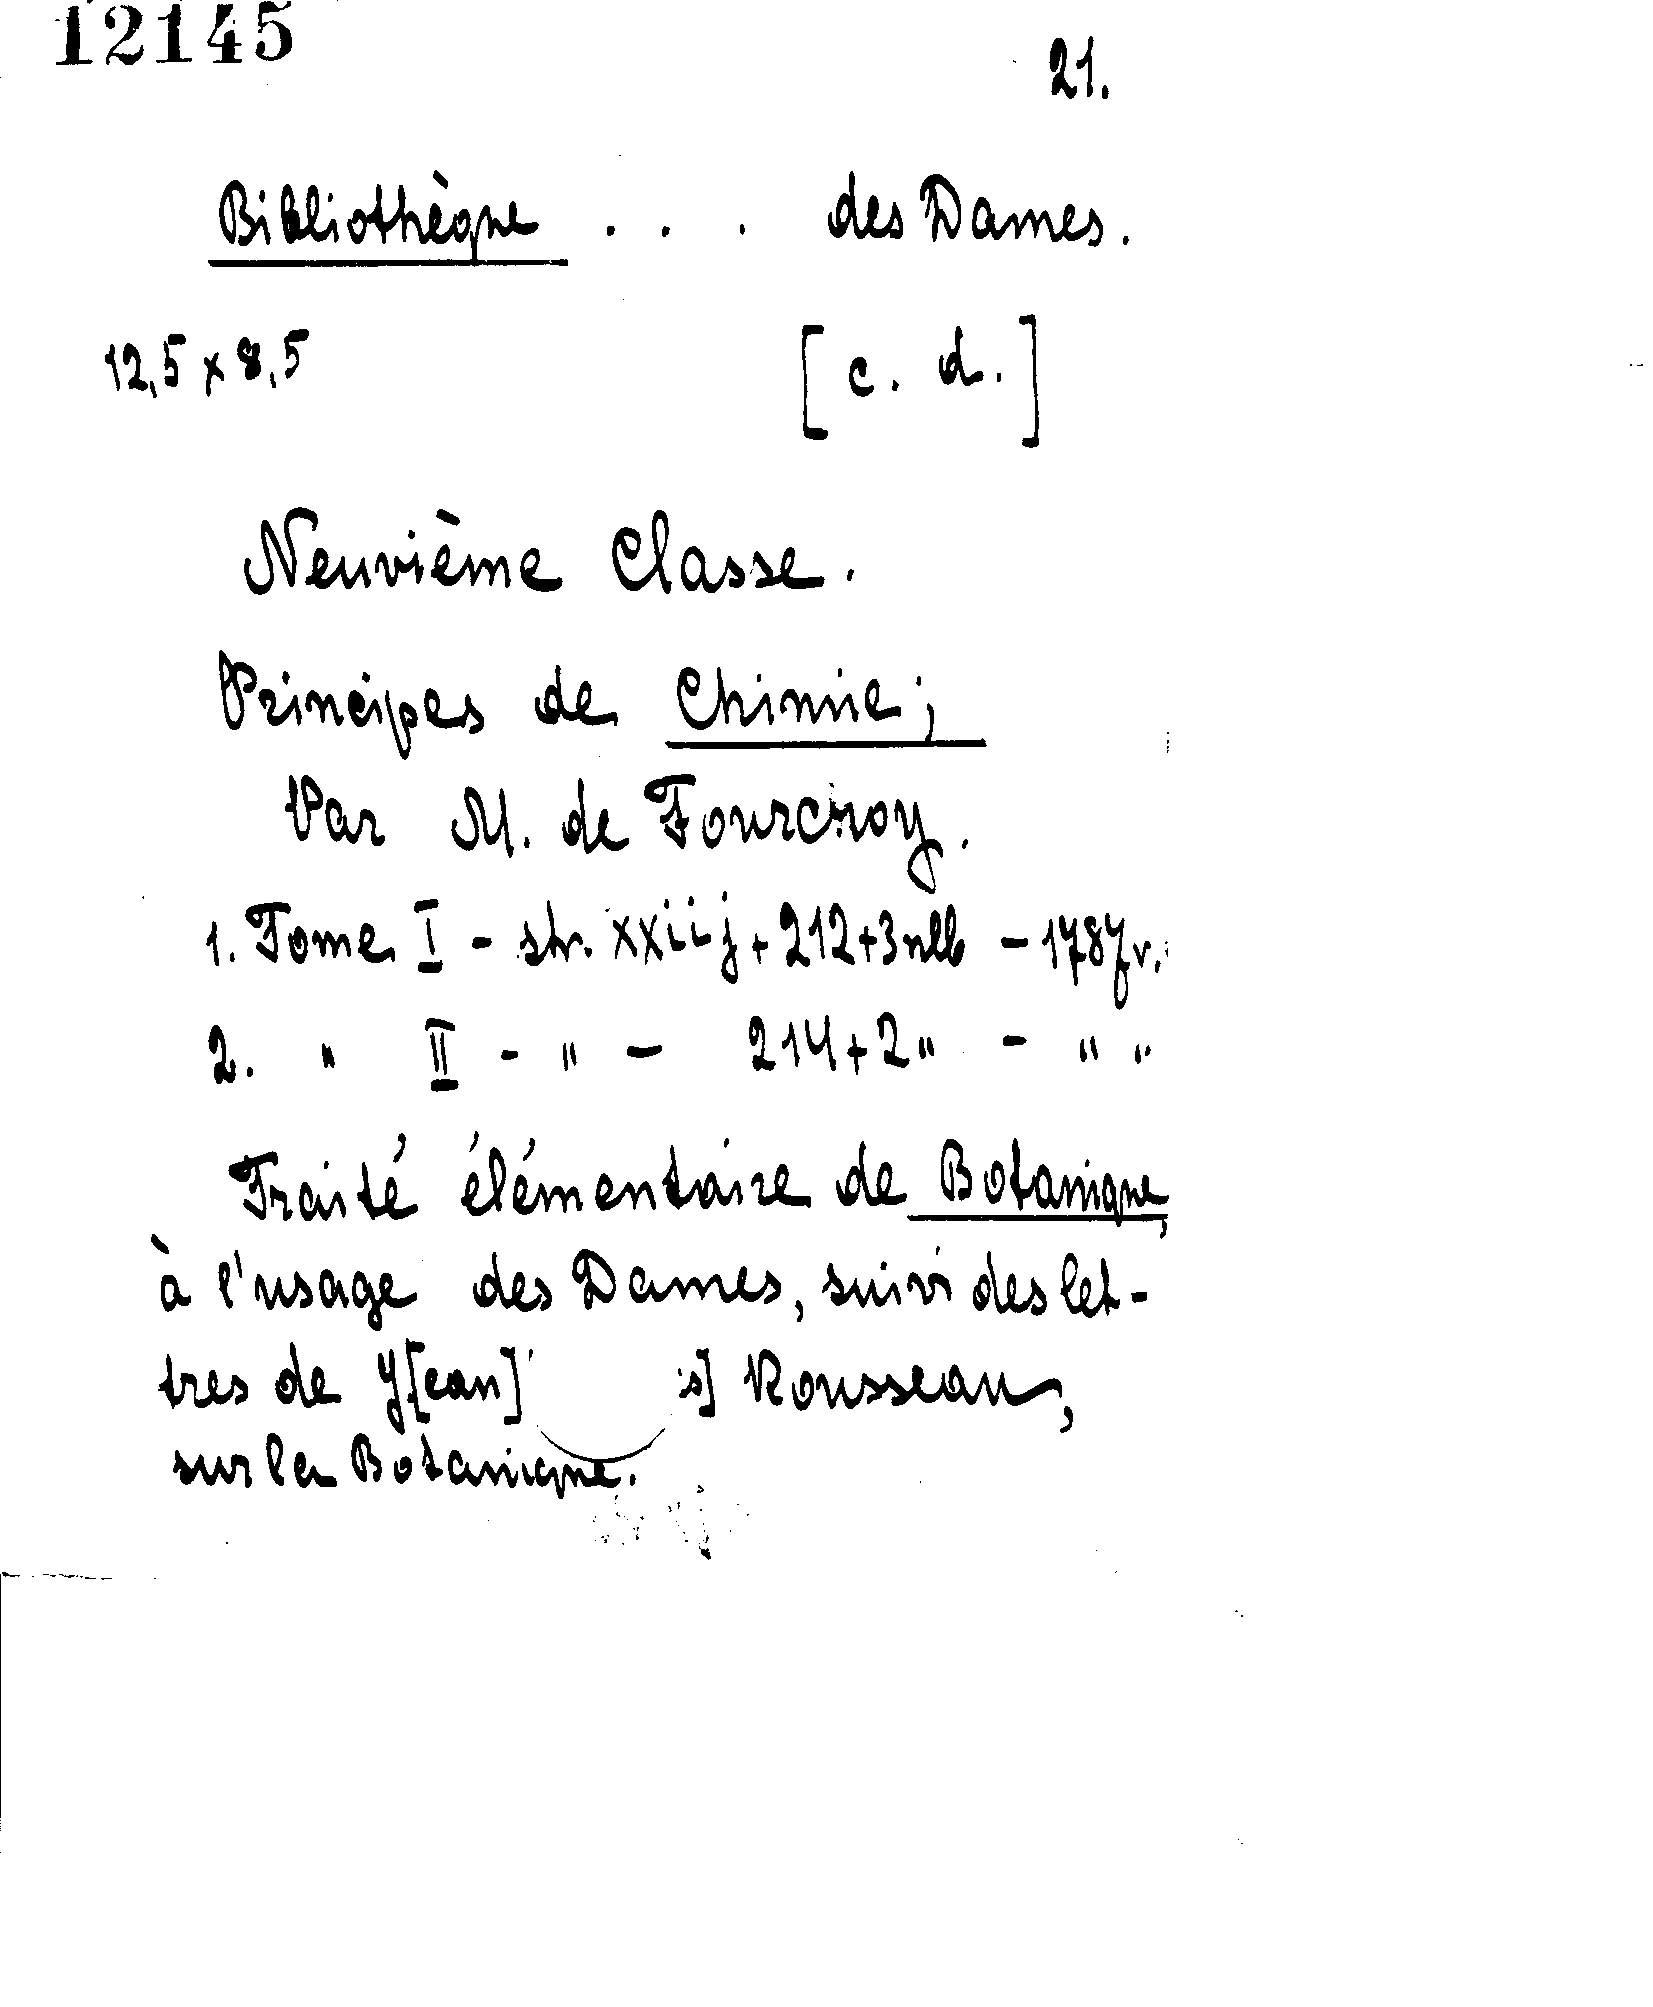 12145
21.
Bibliothèque . . . des Dames.
12,5 x 8,5 [c. d.]
Neuvième Classe.
Principes de Chimie;
Par M. de Fourcroy.
1. Tome I - str. xxiij + 212 + 3 nlb - 1787 r.
2. " II - " - 214 + 2 " - " "
Traité élémentaire de Botanique,
à l'usage des Dames, suivi des let-
tres de J[ean] s] Rousseau,
sur la Botanique.